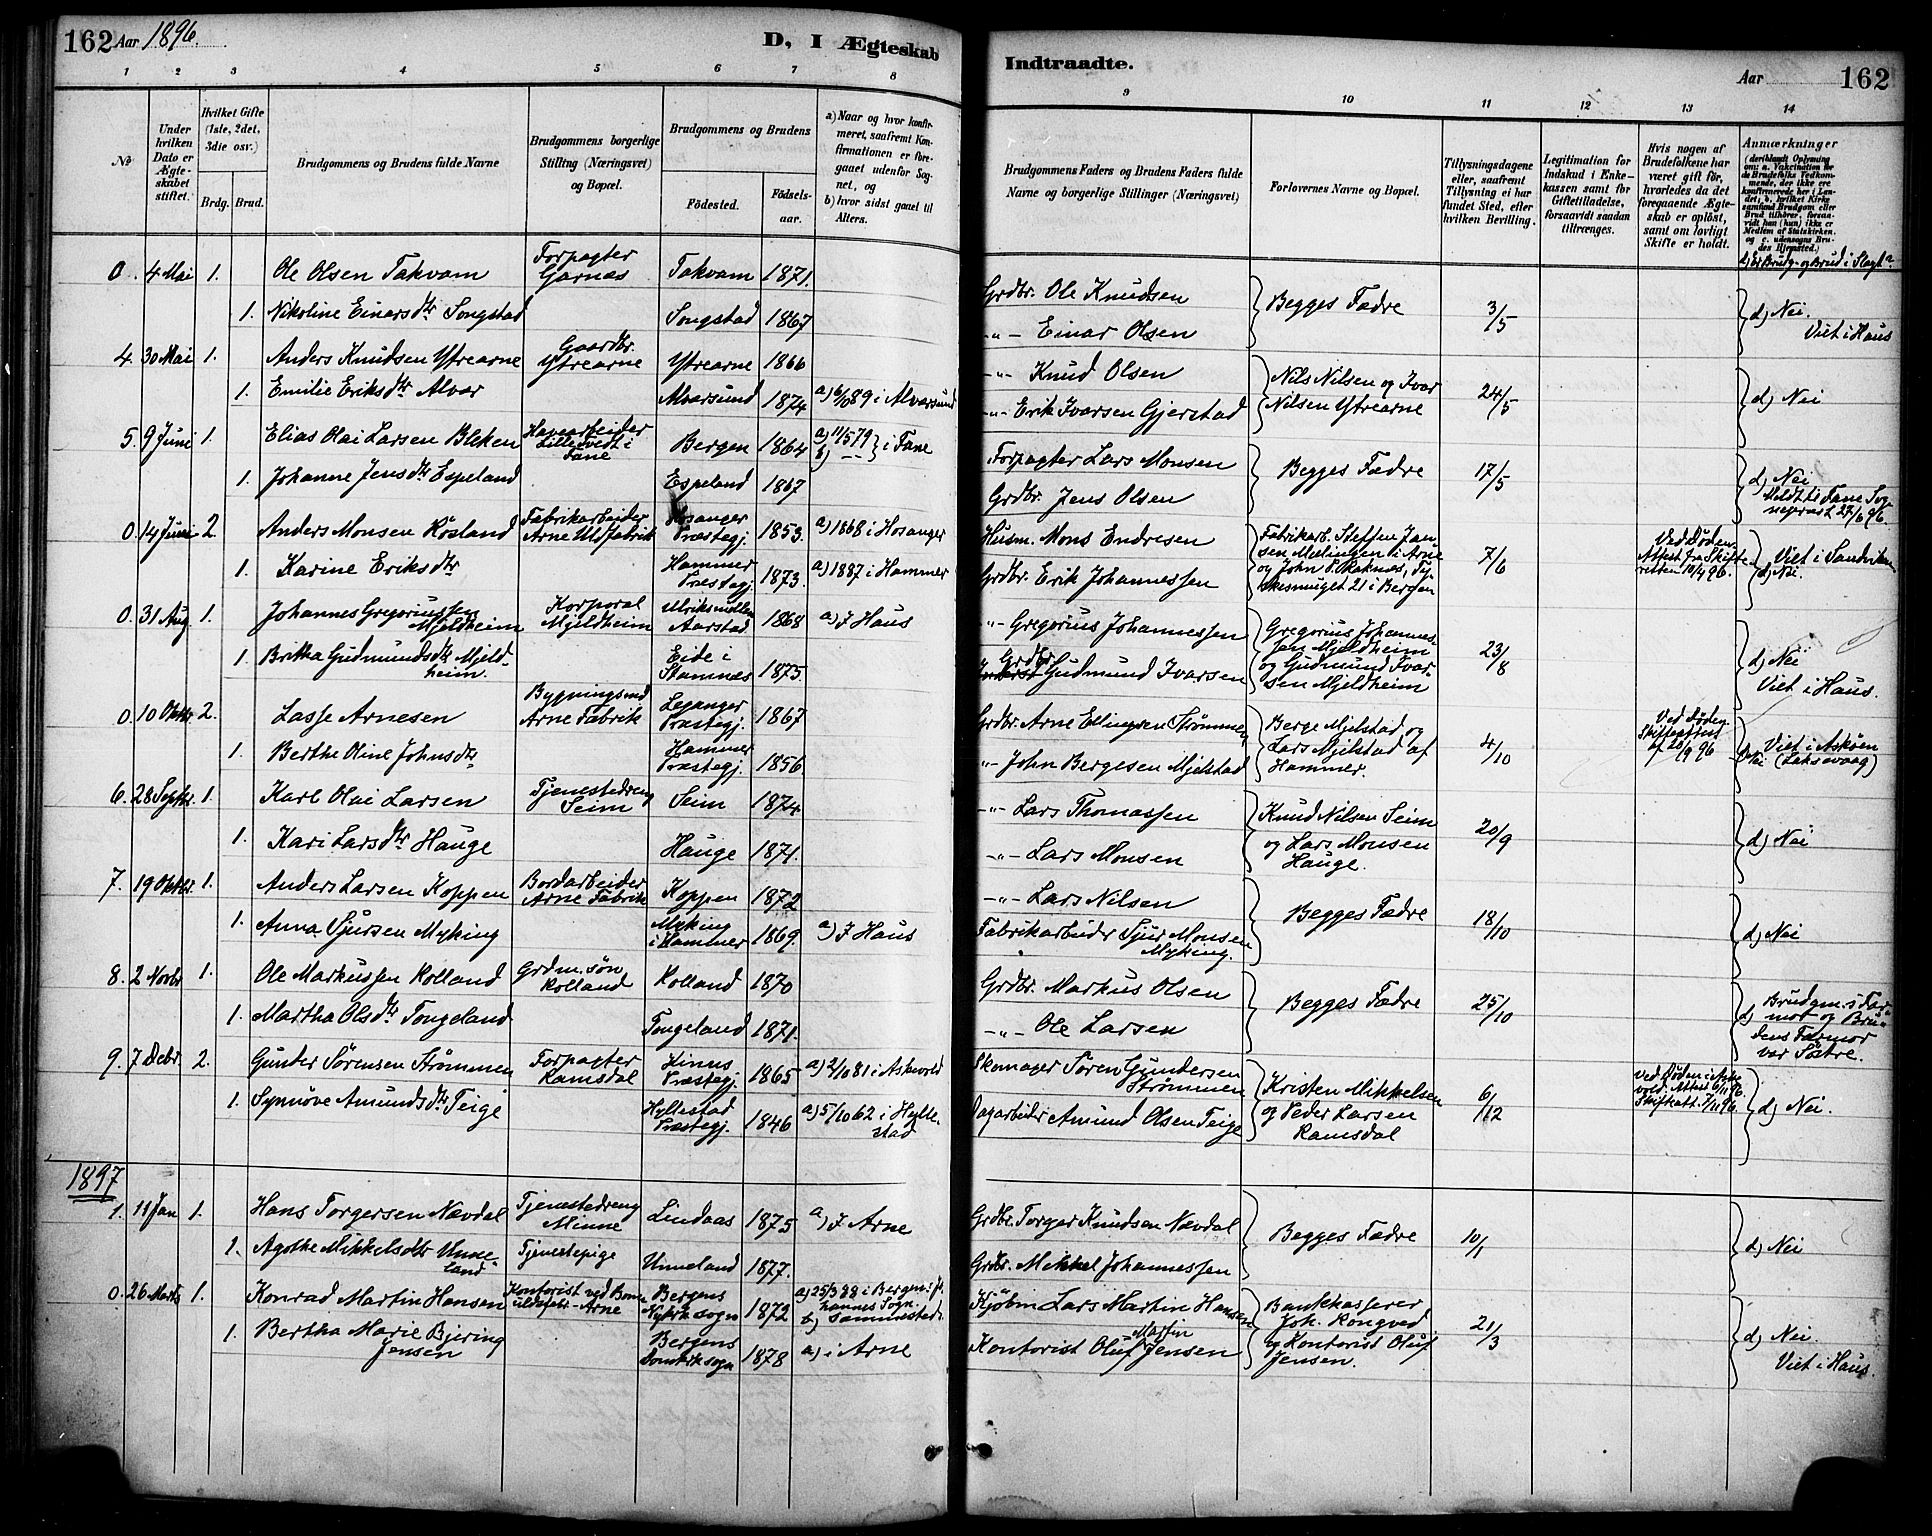 162 Aar 1896.
D, I Ægteskab
Indtraadte.
Aar 162
1 2 3 4 5 6 7 8 9 10 11 12 13 14
No
Under hvilken Dato er Ægteskabet stiftet.
Hvilket Gifte (1ste, 2det, 3die osv.)
Brdg. Brud.
Brudgommens og Brudens fulde Navne
Brudgommens borgerlige Stilling (Næringsvei) og Bopæl.
Brudgommens og Brudens
Fødested.
Fødselsaar.
a) Naar og hvor konfirmeret, saafremt Konfirmationen er foregaaet udenfor Sognet, og
b) hvor sidst gaaet til Alters.
Brudgommens Faders og Brudens Faders fulde Navne og borgerlige Stillinger (Næringsvei)
Forlovernes Navne og Bopæl.
Tillysningsdagene eller, saafremt Tillysning ei har fundet Sted, efter hvilken Bevilling.
Legitimation for Indskud i Enkekassen samt for Giftetilladelse, forsaavidt saadan tiltrænges.
Hvis nogen af Brudefolkene har været gift før, hvorledes da det foregaaende Ægteskab er opløst, samt om lovligt Skifte er holdt.
Anmærkninger
d) Er Brudg. og Brud i Slægt?
0. 4 Mai 1. Ole Olsen Takvam Forpagter Garnæs Takvam 1871. Grdbr. Ole Knudsen Begges Fædre 3/5 d) Nei.
1. Nikoline Einarsdtr Songstad Songstad 1867 -"- Einar Olsen Viet i Haus
4. 30 Mai 1. Anders Knudsen Ytrearne Gaardbr. Ytrearne Ytrearne 1866 -"- Knud Olsen Nils Nilsen og Ivar Nilsen Ytrearne 24/5 d) Nei
1. Emilie Eriksdtr Alvær Alversund 1874 a) 6/10 89 i Alversund -"- Erik Ivarsen Gjerstad
5. 9 Juni 1. Elias Olai Larsen Bleken Havearbeider Lilletvedt i Fane Bergen 1864 a) 11/5 79 b) -- } i Fane Forpagter Lars Monsen Begges Fædre 17/5 d) Nei
1. Johanne Jensdtr Espeland Espeland 1867 Grdbr. Jens Olsen Meldt til Fane Sognepræst 27/6 96.
0. 14 Juni 2. Anders Monsen Rösland Fabrikarbeider Arne Uldfabrik Hosanger Præstegj. 1853. a) 1868 i Hosanger Husm. Mons Endresen Fabrikarb. Steffen Jansen Mælingen i Arne og John P. Skaknes, Tyskesmuget 21 i Bergen 7/6 Ved Døden. Attest fra Skifteretten 10/4 96. Viet i Sandviken
1. Karine Eriksdtr Hammer Præstegj. 1873. a) 1887 i Hammer Grdbr. Erik Johannessen d) Nei.
0. 31 Aug 1. Johannes Gregoriussen Mjeldheim Korporal Mjeldheim Ulriksmøllen Aarstad 1868 a) I Haus -"- Gregorius Johannessen Gregorius Johannessen Mjeldheim og Gudmund Ivarsen Mjeldheim 23/8 d) Nei
1. Britha Gudmundsdtr Mjeldheim. Eide i Stamnæs 1875. Grdbr. Gudmund Ivarsen Viet i Haus.
0. 10 Oktbr 2. Lasse Arnesen Bygningsmd Arne Fabrik Leganger Præstegj. 1867 Grdbr. Arne Ellingsen Strømmen Berge Mjelstad og Lars Mjelstad af Hammer. 4/10 Ved Døden. Skifteattest af 20/9 96 Viet i Askøen (Laksevaag)
1. Berthe Oline Johnsdtr Hammer Præstegj. 1856. -"- John Bergesen Mjelstad d) Nei
6. 28 Septbr. 1. Karl Olai Larsen Tjenestedreng Seim Seim 1874 -"- Lars Thomassen Knud Nilsen Seim og Lars Monsen Hauge. 20/9 d) Nei
1. Kari Larsdtr Hauge Hauge 1871. -"- Lars Monsen
7. 19 Oktbr. 1. Anders Larsen Koppen Bordarbeider Arne Fabrik Koppen 1872 -"- Lars Nilsen Begges Fædre 18/10 d) Nei
1. Anna Sjursen Myking Myking i Hammer 1869. a) I Haus Fabrikarbeider Sjur Monsen Myking.
8. 2 Novbr 1. Ole Markussen Rolland Grdm. søn Rolland Rolland 1870 Grdbr. Markus Olsen Begges Fædre 25/10 d) Brudgm.s Farmor og Brudens Farmor var Søstre.
1. Martha Olsdtr Tongeland Tongeland 1871. -"- Ole Larsen
9. 7 Debr. 2. Gunder Sørensen Strømmen Forpagter Ramsdal Kinns Præstegj. 1865 a) 2/10 81 i Askevold Skomager Søren Gundersen Strømmen Kristen Mikkelsen og Peder Larsen Ramsdal 6/12 Ved Døden i Askevold. Attest 6/11 96. Skifteatt. 7/11 96. d) Nei.
1. Synnöve Amundsdtr Teige Hyllestad Præstegj. 1846 a) 5/10 62 i Hyllestad Dagarbeider Amund Olsen Teige
1897
1. 11 Jan 1. Hans Torgersen Nævdal Tjenestedreng Minne Lindaas 1875 a) I Arne Grdbr. Torger Knudsen Nævdal Begges Fædre 10/1 d) Nei
1. Agothe Mikkelsdtr Unneland Tjenestepige Unneland 1877. Grdbr. Mikkel Johannessen
0. 26 Marts 1. Konrad Martin Hansen Kontorist ved Bome uldsfabr. Arne Bergens Nykirk.sogn 1872 a) 25/3 88 i Bergens Johannes Sogn. b) sammesteds. Kjøbm Lars Martin Hansen Bankkasserer Joh. Rongved og Kontorist Oluf Jensen. 21/3 d) Nei.
1. Bertha Marie Bjering Jensen Bergens Domkirk.sogn 1878 a) i Arne Kontorist Oluf Martin Jensen Viet i Haus.